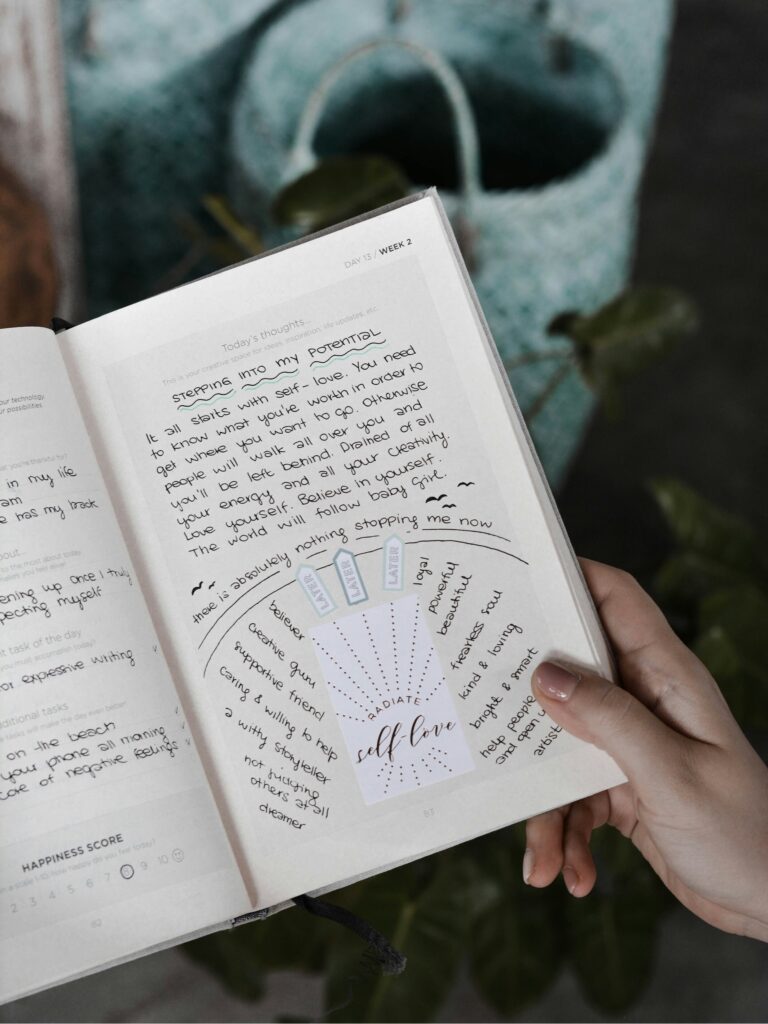 our technology
our possibilities.
what you're thankful for?
in my life
am
e has my back
about...
to the most about today
makes you feel alive!
ening up once I truly
pecting myself
t task of the day
you must accomplish today?
or expressive writing
ditional tasks
tasks will make the day even better!
on the beach
your phone all morning
care of negative feelings
HAPPINESS SCORE
n a scale 1-10, how happy do you feel today?
2 3 4 5 6 7 8 9 10
82
DAY 13 / WEEK 2
Today's thoughts...
This is your creative space for ideas, inspiration, life updates, etc.
STEPPING INTO MY POTENTIAL
It all starts with self-love. You need
to know what you're worth in order to
get where you want to go. Otherwise
people will walk all over you and
you'll be left behind. Drained of all
your energy and all your creativity.
Love yourself. Believe in yourself.
The world will follow baby girl.
there is absolutely nothing stopping me now
LATER
LATER
LATER
believer
creative guru
supportive friend
caring & willing to help
a witty storyteller
not judging
others at all
dreamer
RADIATE
self-love
loyal
powerful
beautiful
fearless soul
kind & loving
bright & smart
help people
and open
artist
83